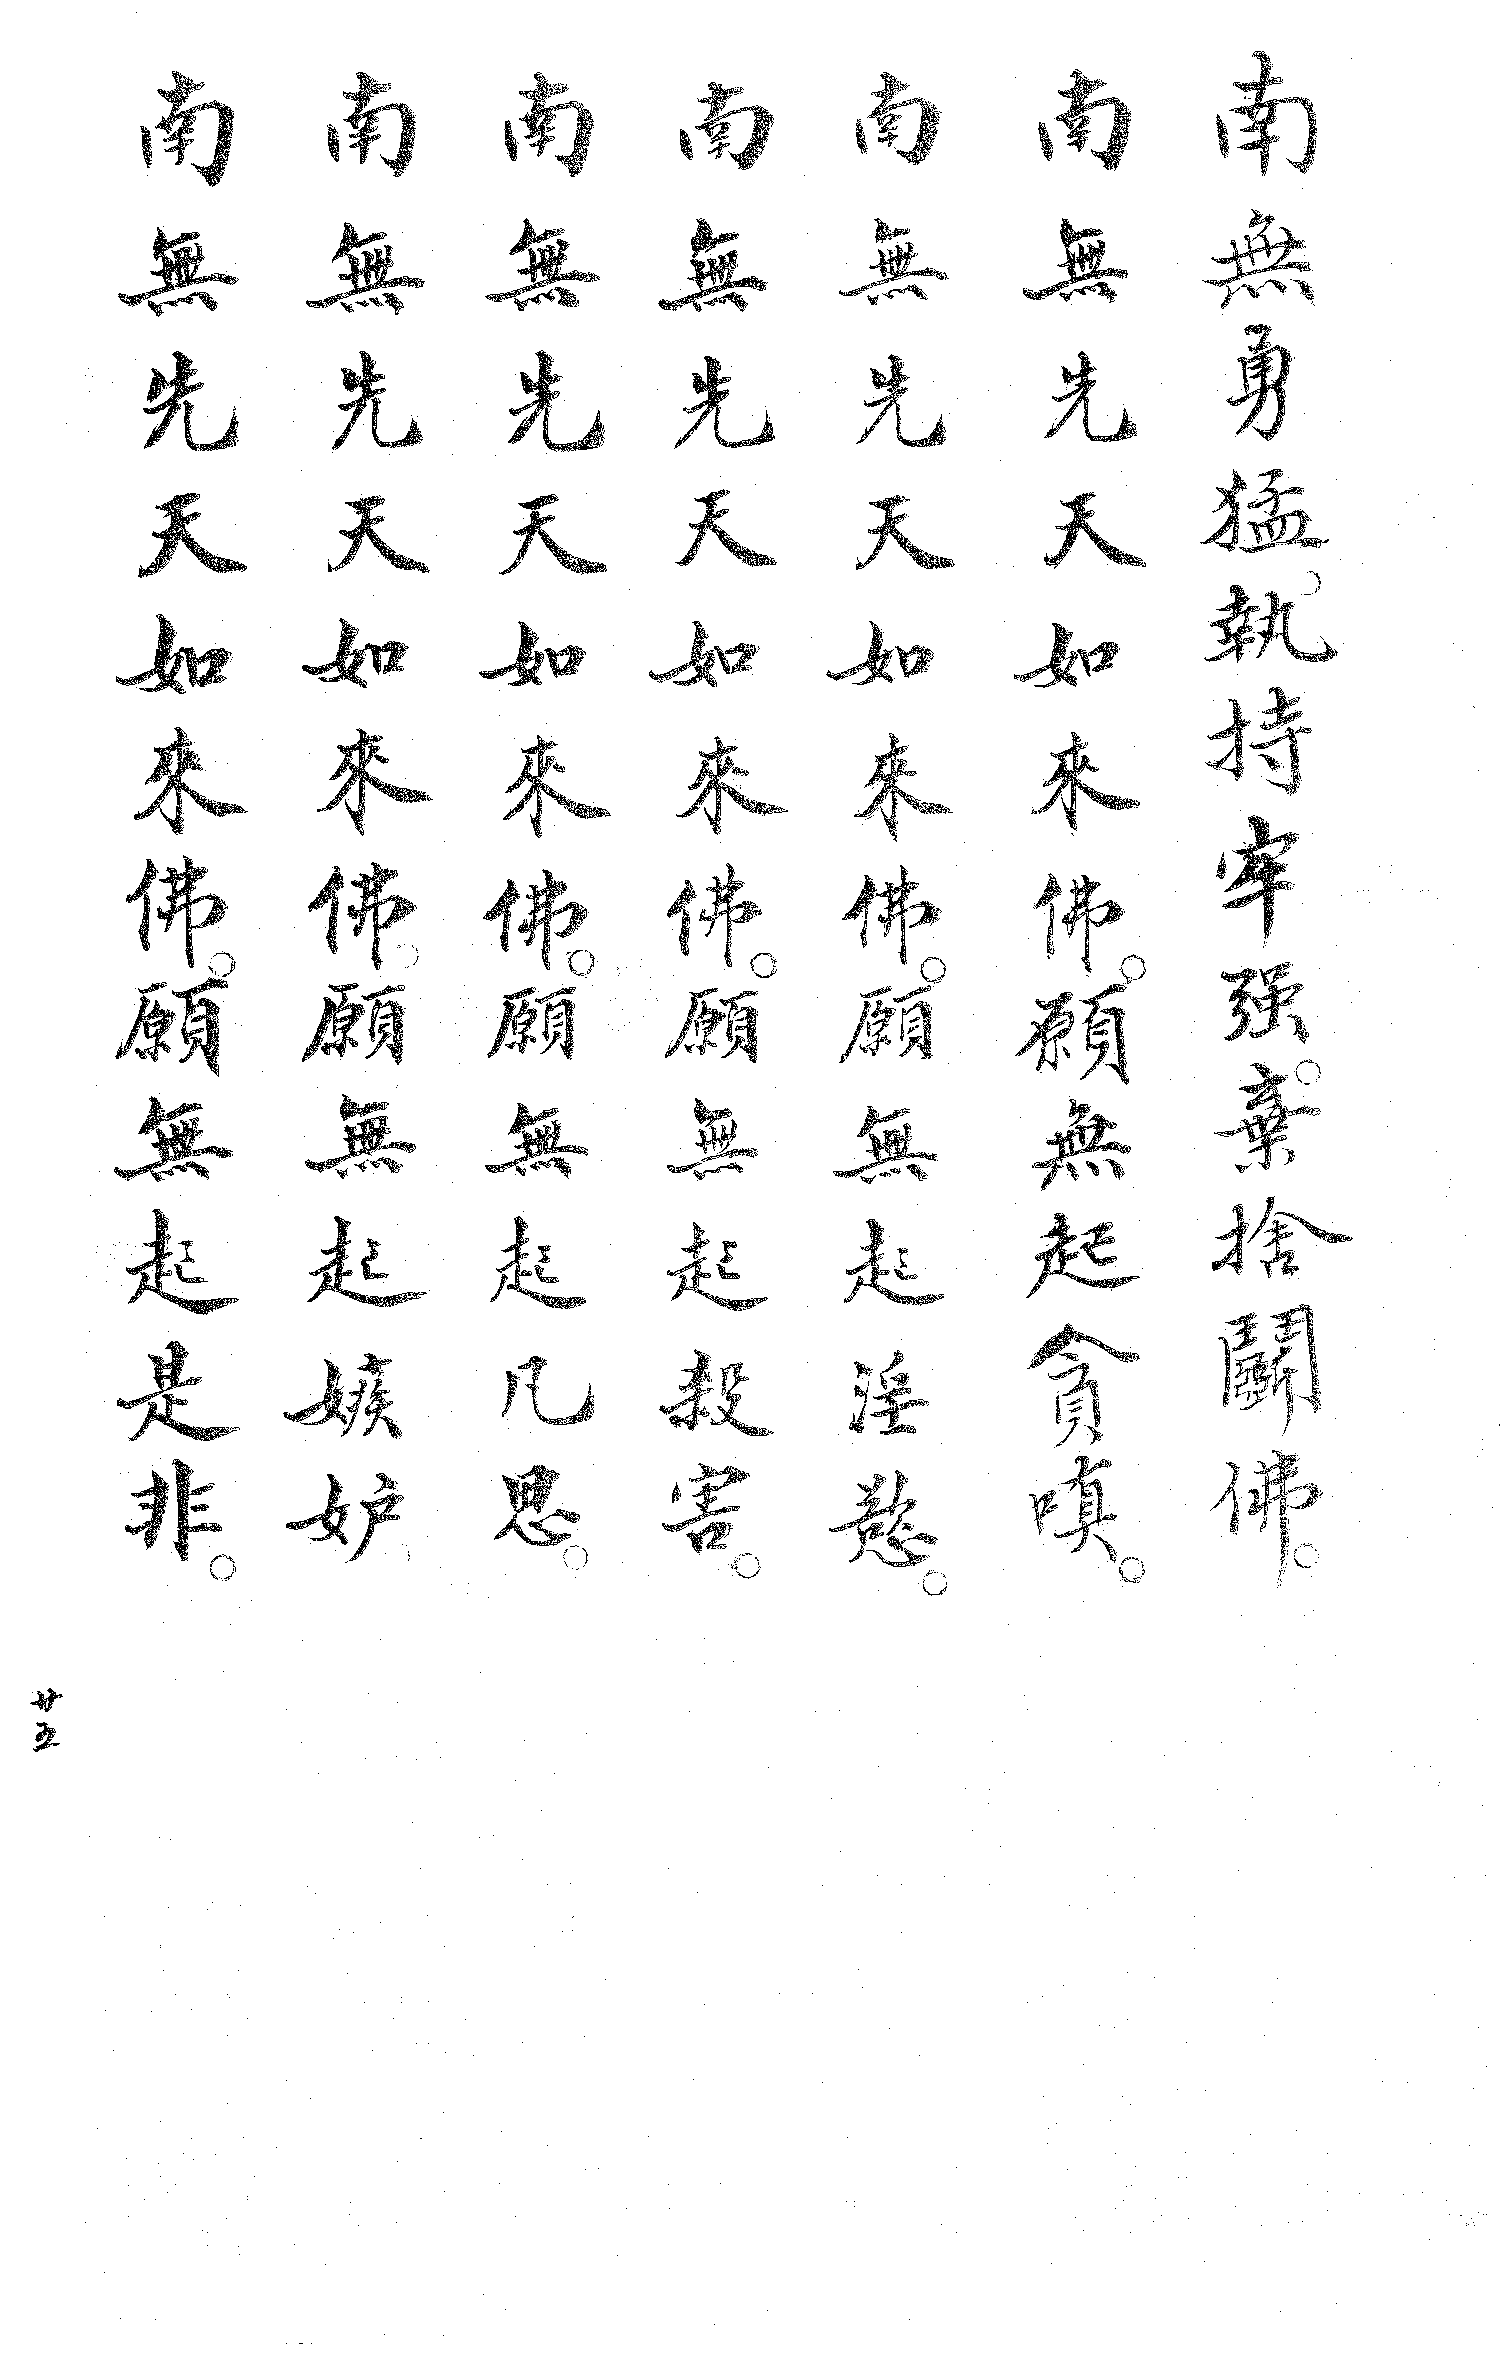 南無勇猛。執持牢强。棄捨鬪佛。
南無先天如來佛。願無起貪嗔。
南無先天如來佛。願無起淫慾。
南無先天如來佛。願無起殺害。
南無先天如來佛。願無起凡思。
南無先天如來佛。願無起嫉妒。
南無先天如來佛。願無起是非。
廿五